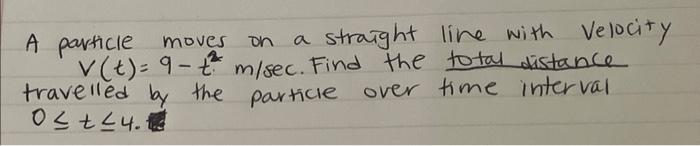 A particle moves on a straight line with Velocity
V(t) = 9 - t² m/sec. Find the total distance
travelled by the particle over time interval
0 ≤ t ≤ 4.